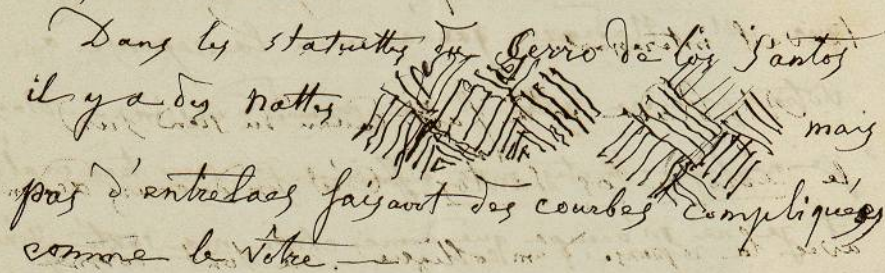 Dans les statuettes du Cerro de los Santos
il y a des nattes mais
pas d'entrelacs faisant des courbes compliquées
comme le vôtre.